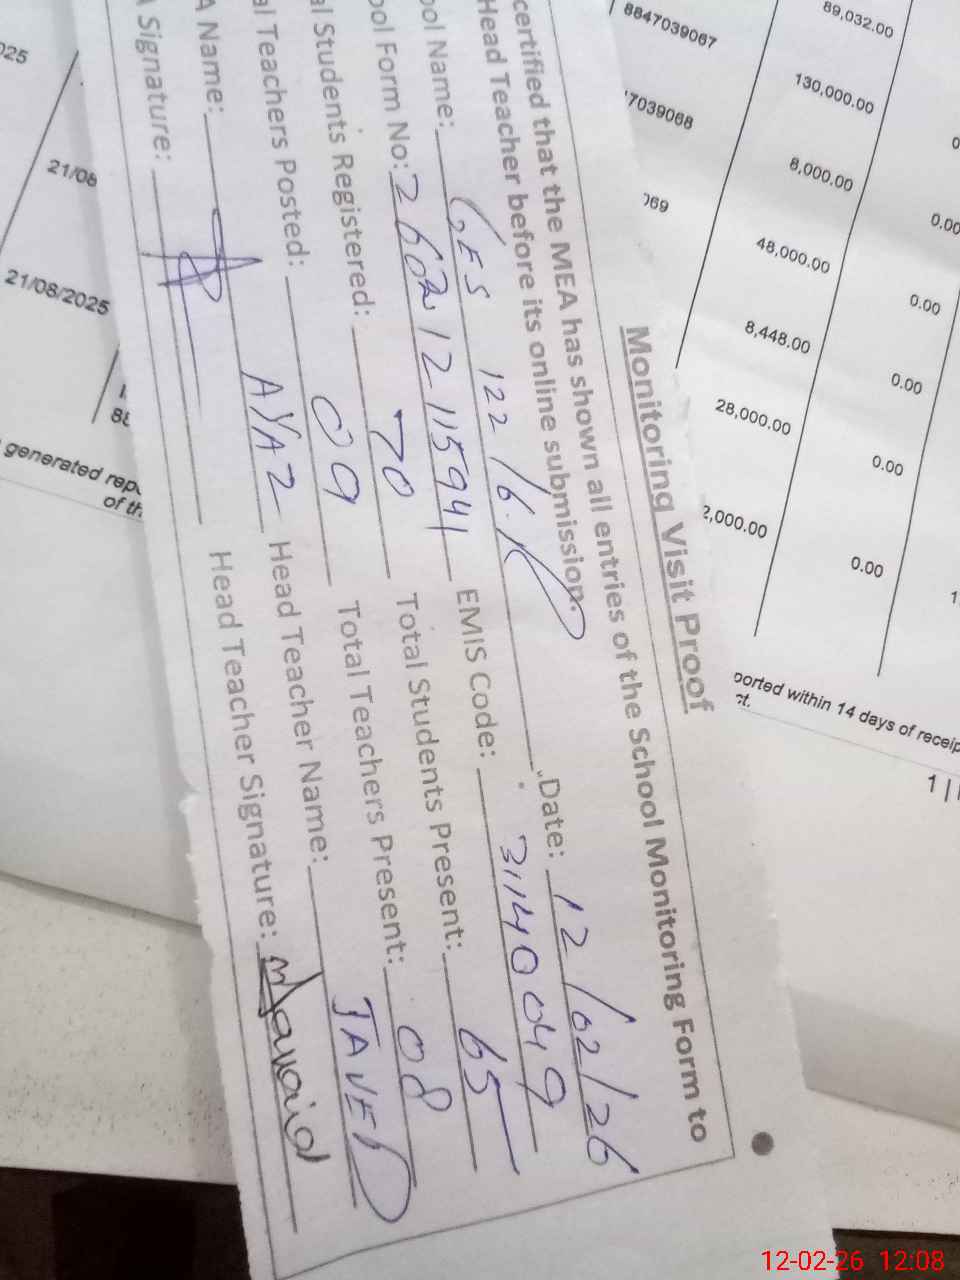 Monitoring Visit Proof
certified that the MEA has shown all entries of the School Monitoring Form to
Head Teacher before its online submission.
ool Name: GES 122/6.R Date: 12/02/26
ool Form No: 2602 12 11594 EMIS Code: 31140049
al Students Registered: 70 Total Students Present: 65
al Teachers Posted: 09 Total Teachers Present: 08
A Name: AYAZ Head Teacher Name: JAVED
A Signature: Head Teacher Signature:
8847039067
7039068
069
89,032.00
130,000.00
8,000.00
48,000.00
8,448.00
28,000.00
2,000.00
0.00
0.00
0.00
0.00
0.00
ported within 14 days of receip
ct.
1 |
025
21/08
21/08/2025
generated repo
of th
12-02-26 12:08